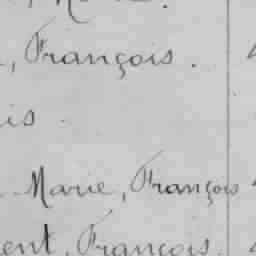 , François.
is.
Marie, François
ent, François.